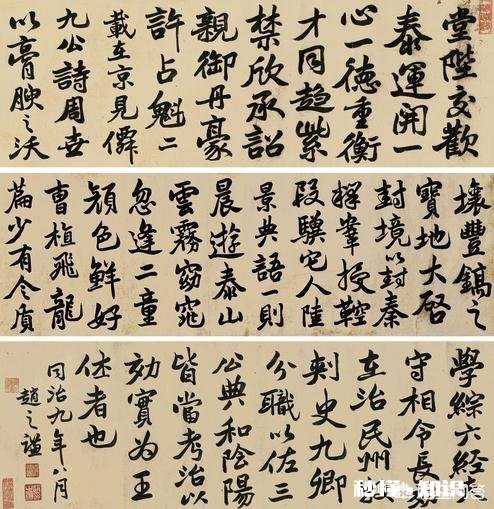 堂陛交歡
泰運開一
心一德重衡
才同趨紫
禁欣承詔
親御丹豪
許占魁二
載在京見
九公詩周世
以膏腴之沃
壤豐鎬之
寶地大啓
封境以封秦
釋授鞚
段驥它人陸
景典語一則
晨遊泰山
雲霧窈窕
忽逢二童
顏色鮮好
曹植飛龍
篇少有令質
學綜六經
守相令長
在治民州
刺史九卿
分職以佐三
公典和陰陽
皆當考治以
効實為王
者也
同治九年八月
趙之謙
秒懂 知識